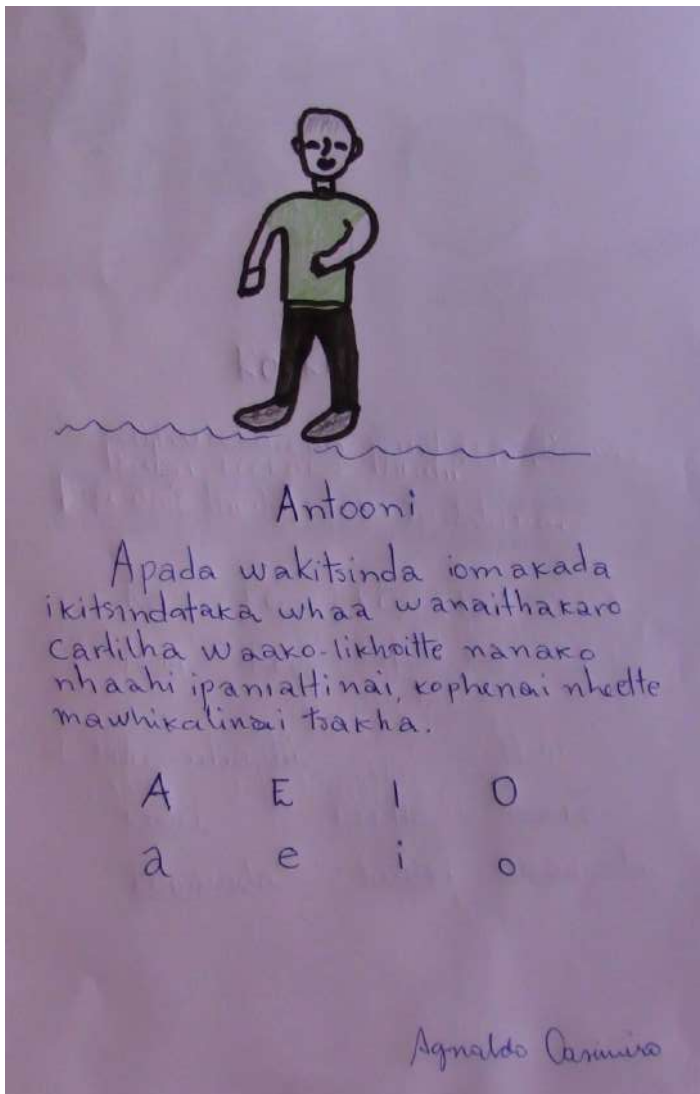 Antooni
Apada wakitsinda iomakada
ikitsindataka whaa wanaithakaro
Cartilha waako-likhoitte nanako
nhaahi ipaniattinai, kophenai nheette
mawhikalinai tsakha.
A E I O
a e i o
Agnaldo Casimiro